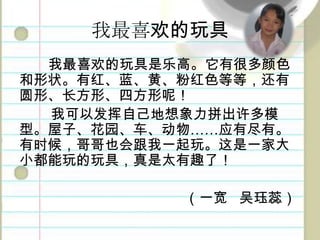 我最喜欢的玩具
我最喜欢的玩具是乐高。它有很多颜色
和形状。有红、蓝、黄、粉红色等等，还有
圆形、长方形、四方形呢！
我可以发挥自己地想象力拼出许多模
型。屋子、花园、车、动物……应有尽有。
有时候，哥哥也会跟我一起玩。这是一家大
小都能玩的玩具，真是太有趣了！
（一宽 吴珏蕊）